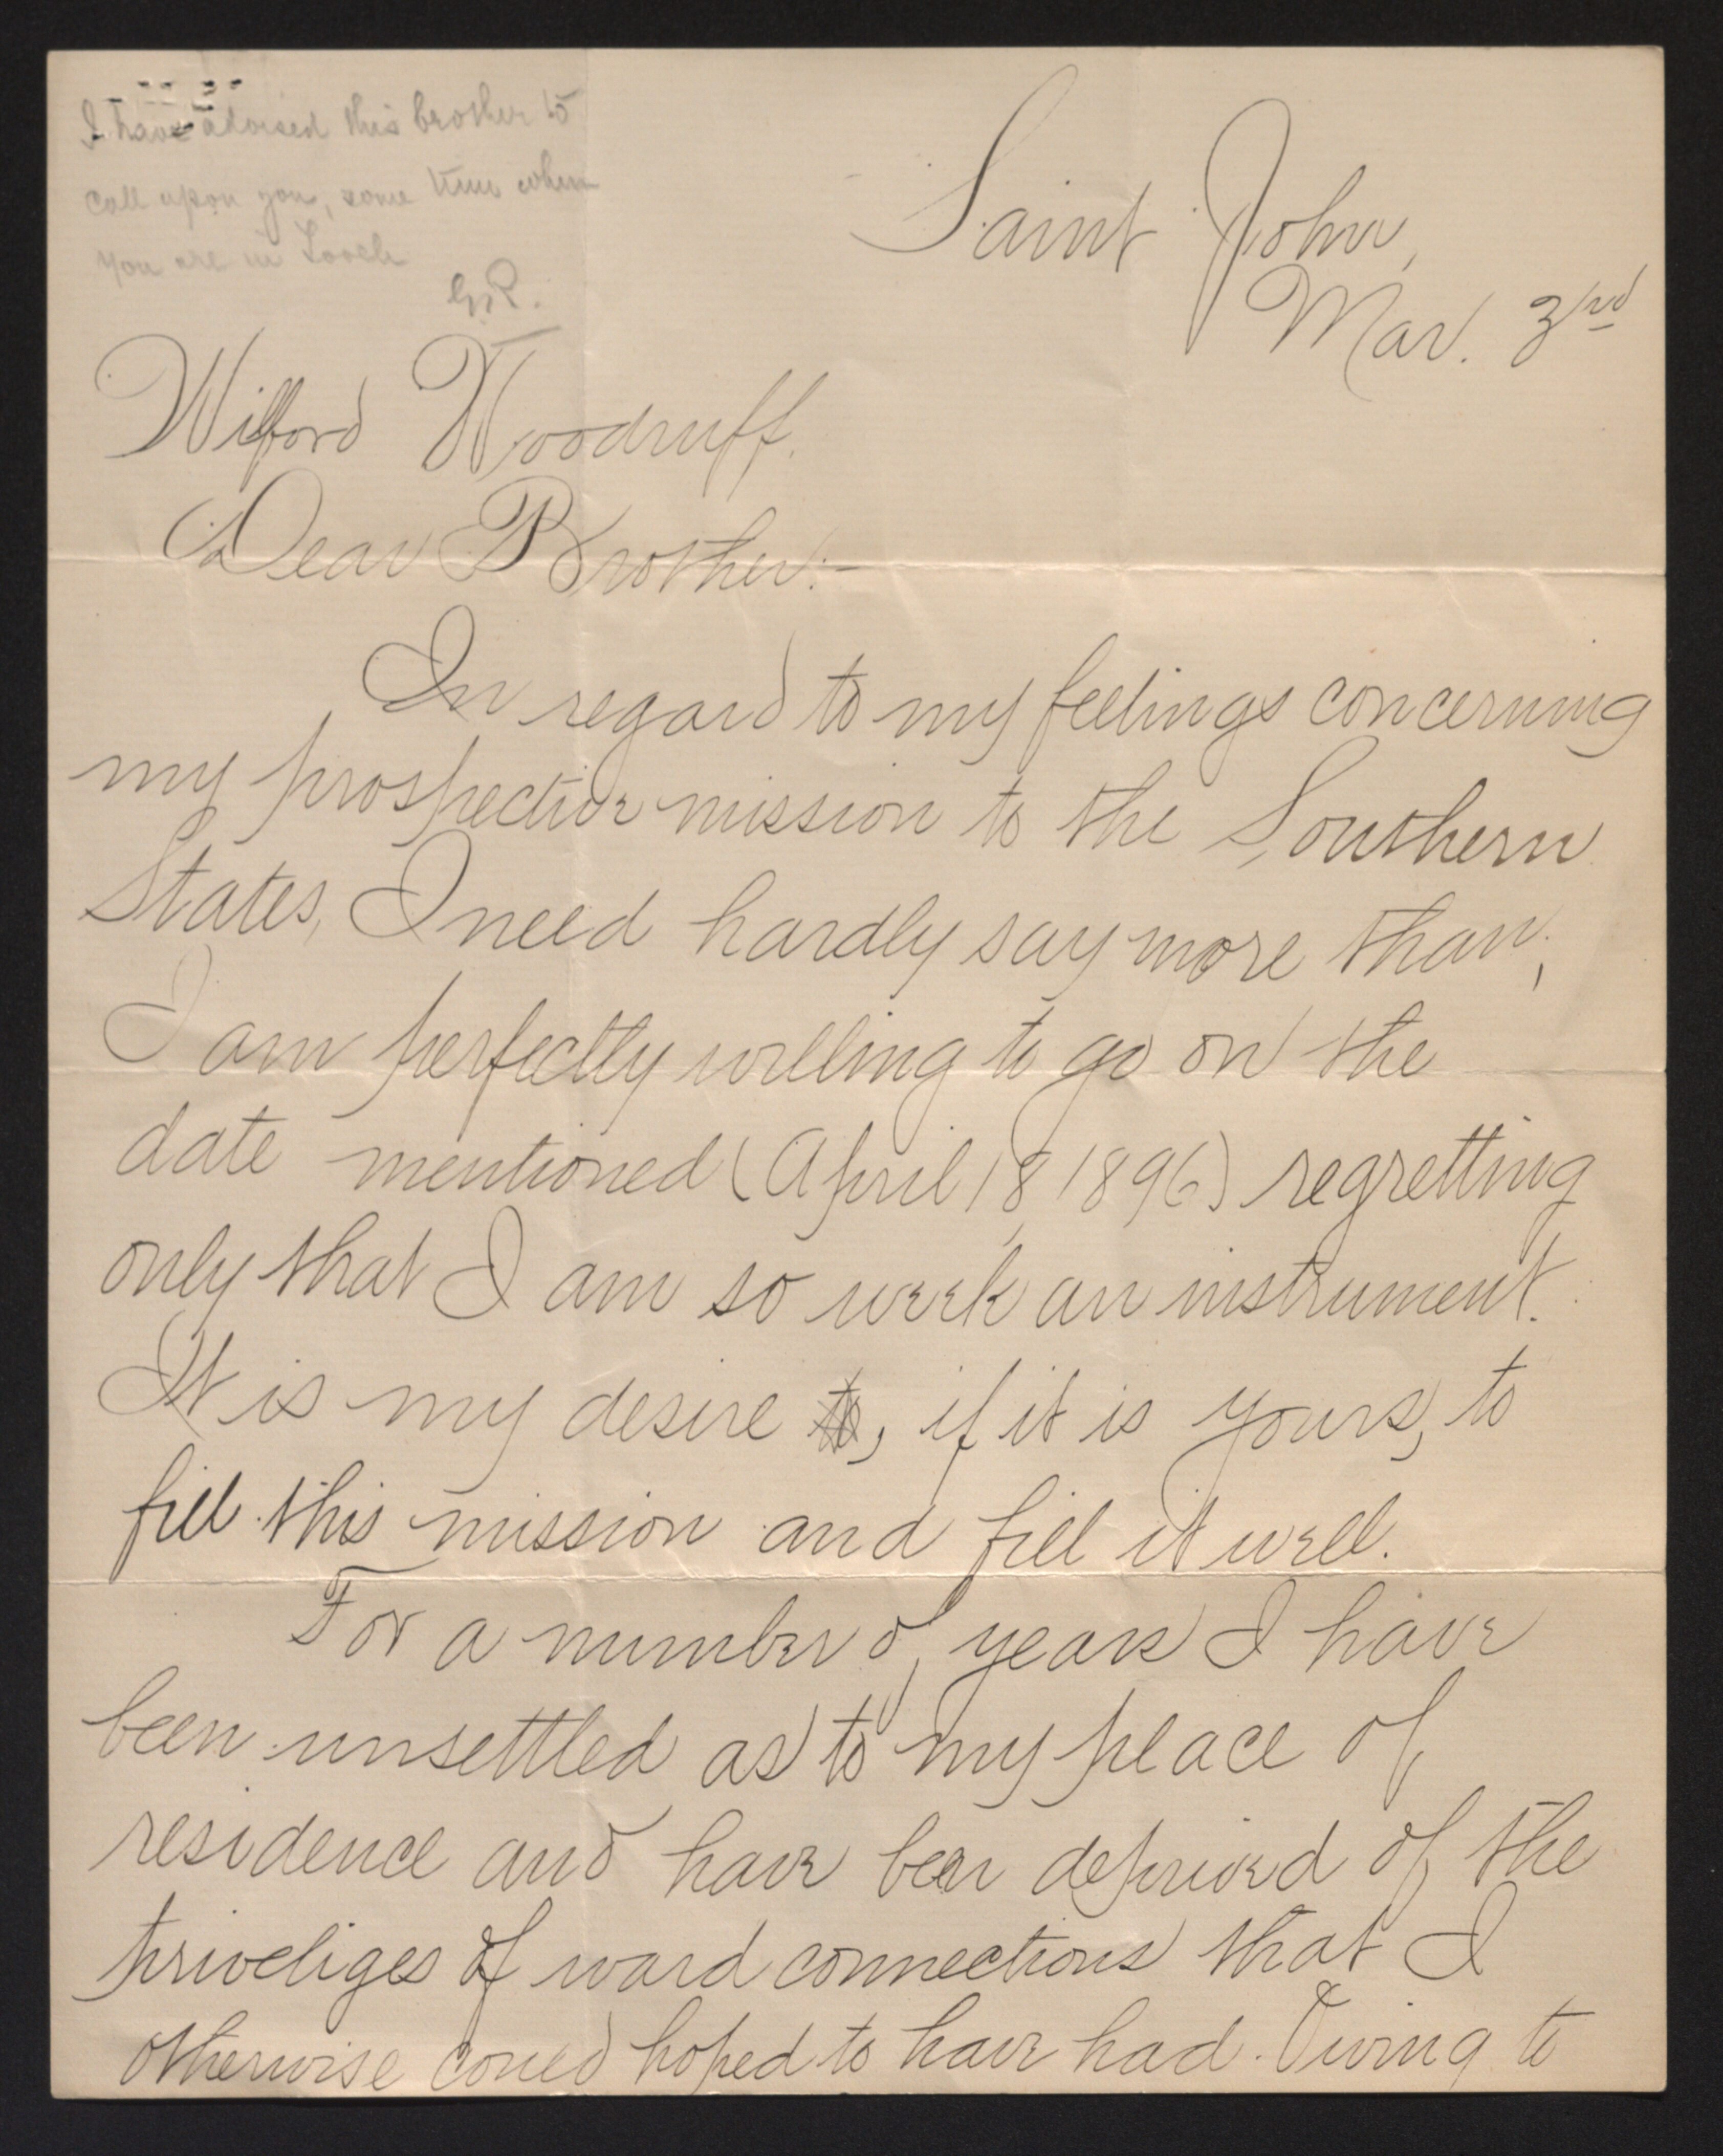 I have advised this brother to
call upon you, some time when
you are in Tooele
G.R.
Saint John,
Mar. 3rd
Wilford Woodruff.
Dear Brother:-
In regard to my feelings concerning
my prospective mission to the Southern
States, I need hardly say more than,
I am perfectly willing to go on the
date mentioned (April 18, 1896) regretting
only that I am so week an instrument.
It is my desire to, if it is yours, to
fill this mission and fill it well.
For a number of years I have
been unsettled as to my place of
residence and have been deprived of the
priveliges of ward connections that I
otherwise could hoped to have had. Owing to